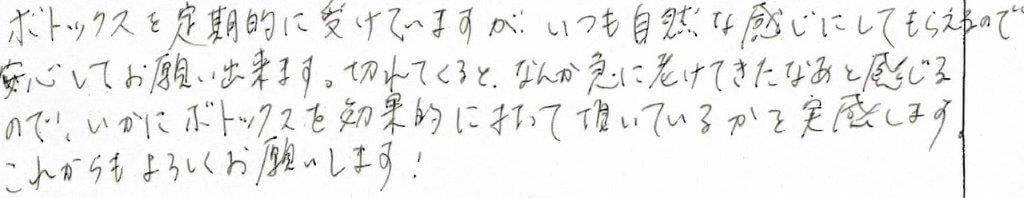 ボトックスを定期的に受けていますが、いつも自然な感じにしてもらえるので
安心してお願い出来ます。切れてくると、なんか急に老けてきたなあと感じる
ので、いかにボトックスを効果的に打って頂いているかを実感します。
これからもよろしくお願いします！